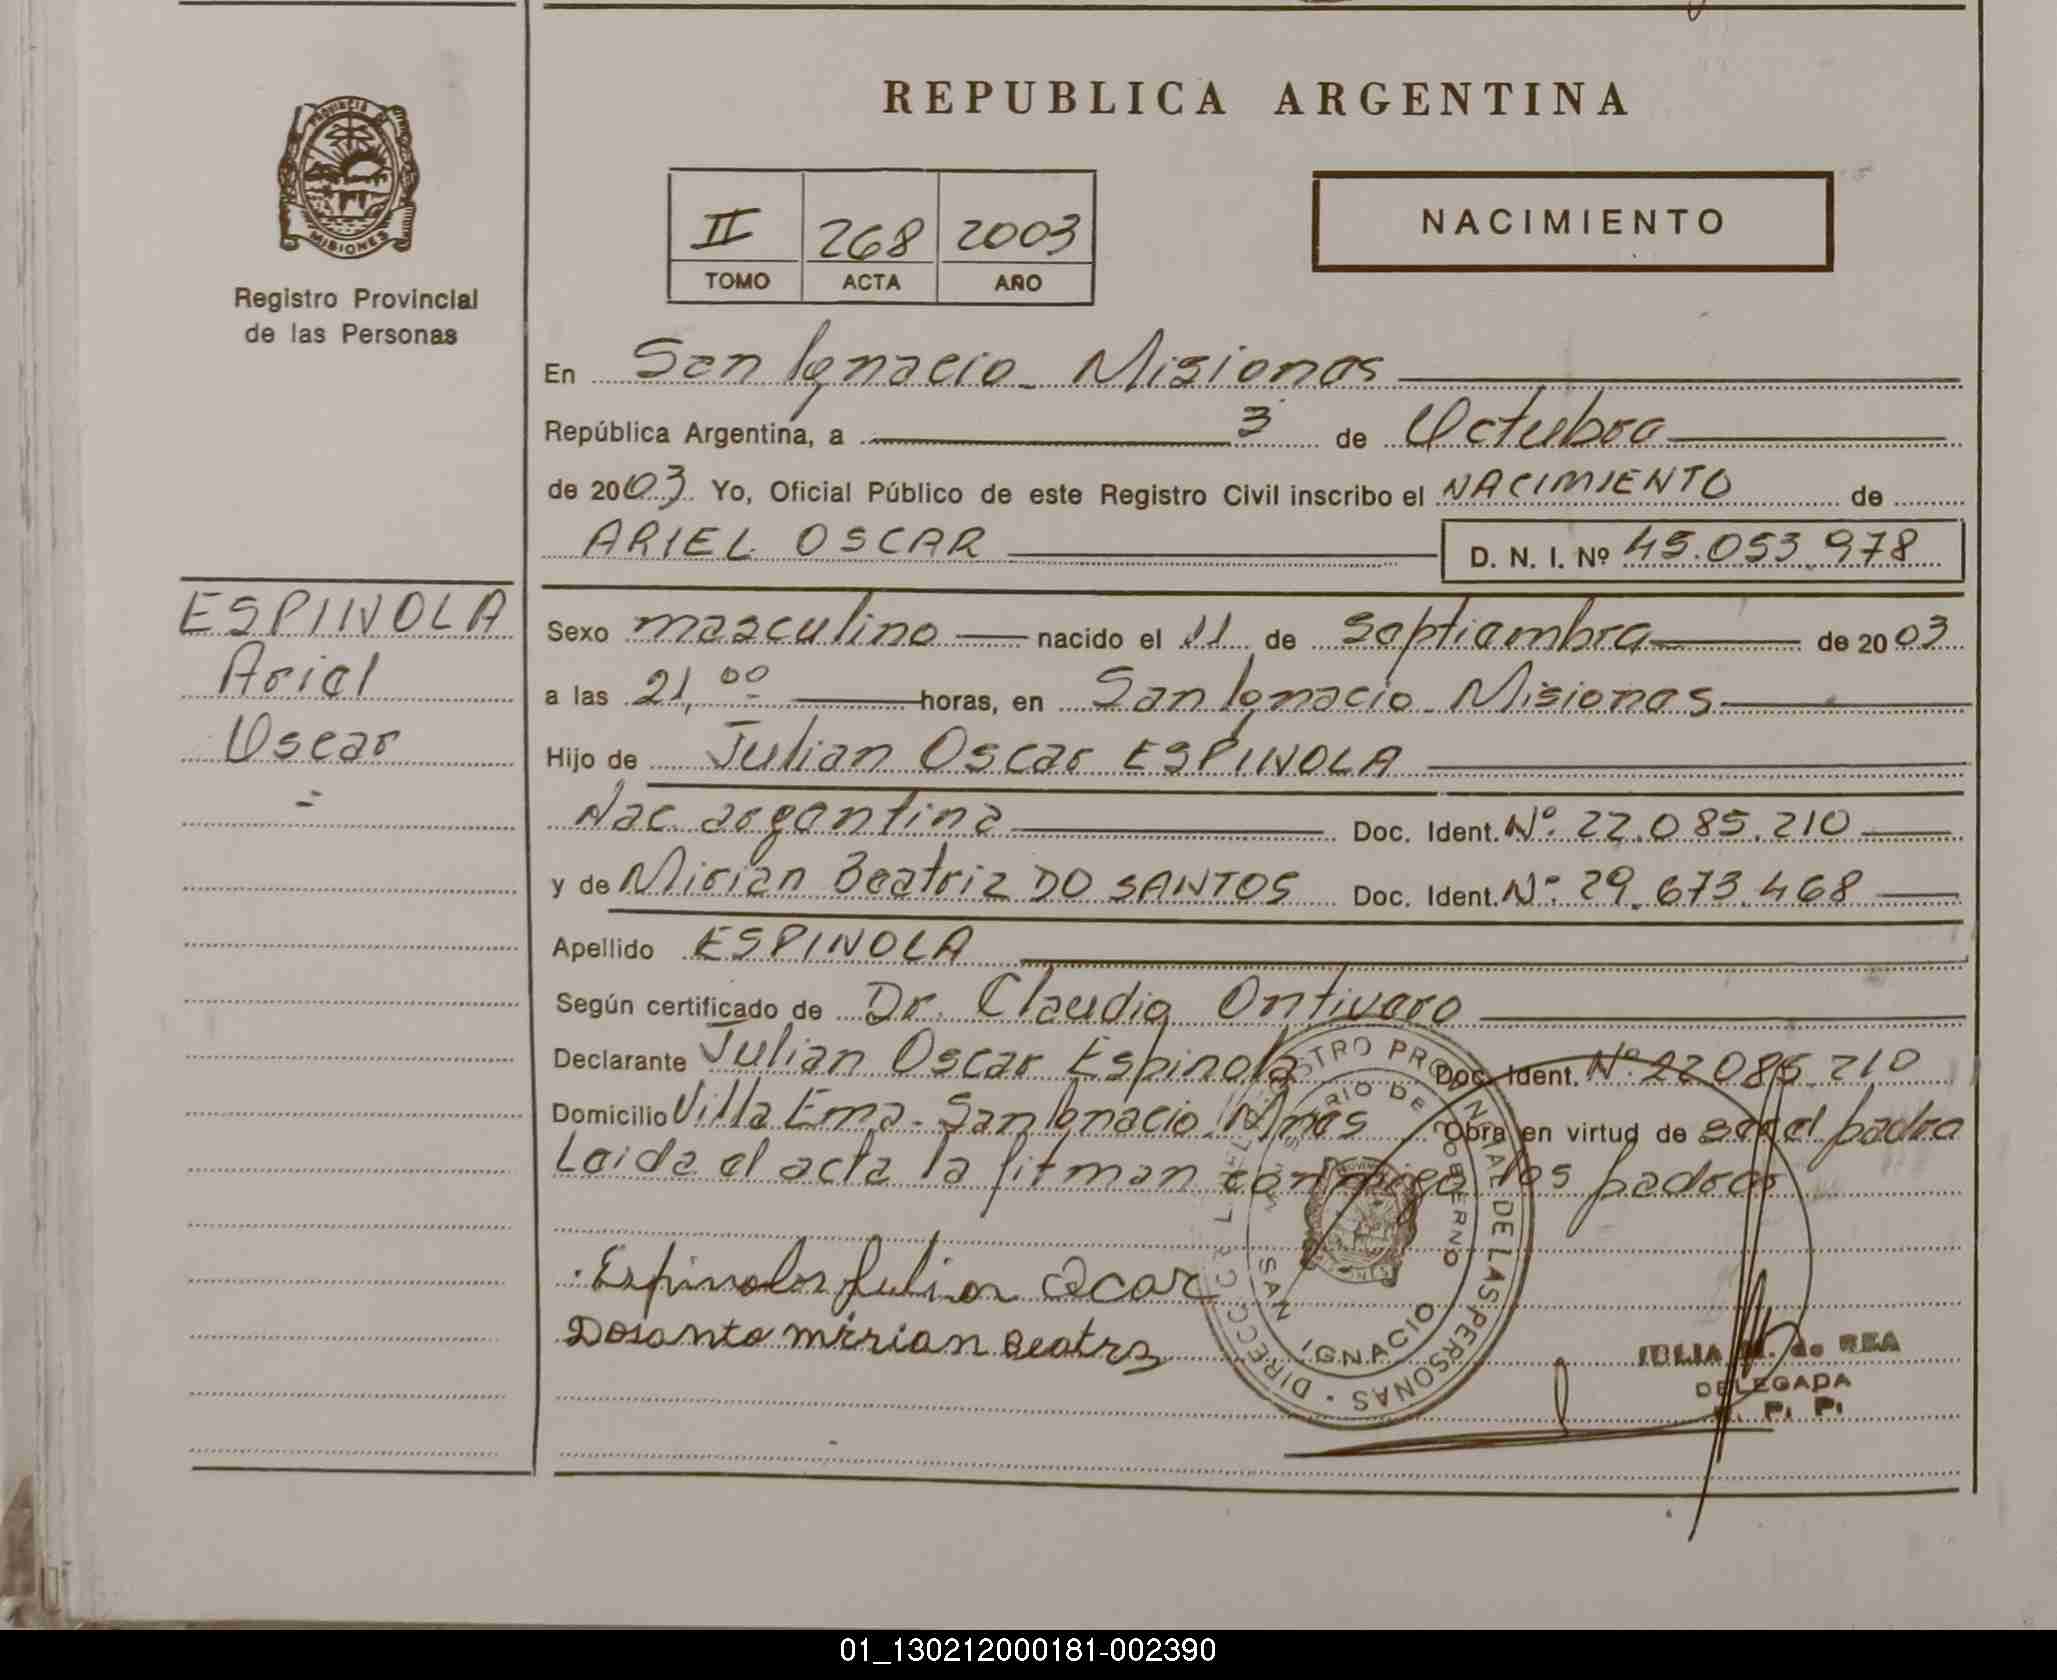 REPUBLICA ARGENTINA
PROVINCIA DE
MISIONES
Registro Provincial
de las Personas
II 268 2003
TOMO ACTA AÑO
NACIMIENTO
En San Ignacio - Misiones
República Argentina, a 3 de Octubre
de 2003 Yo, Oficial Público de este Registro Civil inscribo el NACIMIENTO de
ARIEL OSCAR D. N. I. Nº 45.053.978
ESPINOLA
Ariel
Oscar
=
Sexo masculino nacido el 11 de Septiembre de 2003
a las 21,00 horas, en San Ignacio - Misiones
Hijo de Julian Oscar ESPINOLA
Nac. argentina Doc. Ident. Nº: 22.085.210
y de Mirian Beatriz DO SANTOS Doc. Ident. Nº: 29.673.468
Apellido ESPINOLA
Según certificado de Dr. Claudio Ontivero
Declarante Julian Oscar Espinola Doc. Ident. Nº 22085.210
Domicilio Villa Ema - San Ignacio Mnes Obra en virtud de ser el padre
Leida el acta la firman conmigo los padres
Espinola Julian Ocar
Dosanto mirian Beatrz
DIRECCION REGISTRO PROVINCIAL DE LAS PERSONAS
MINISTERIO DE GOBIERNO
SAN IGNACIO
de REA
DELEGADA
R. P. P.
01_130212000181-002390